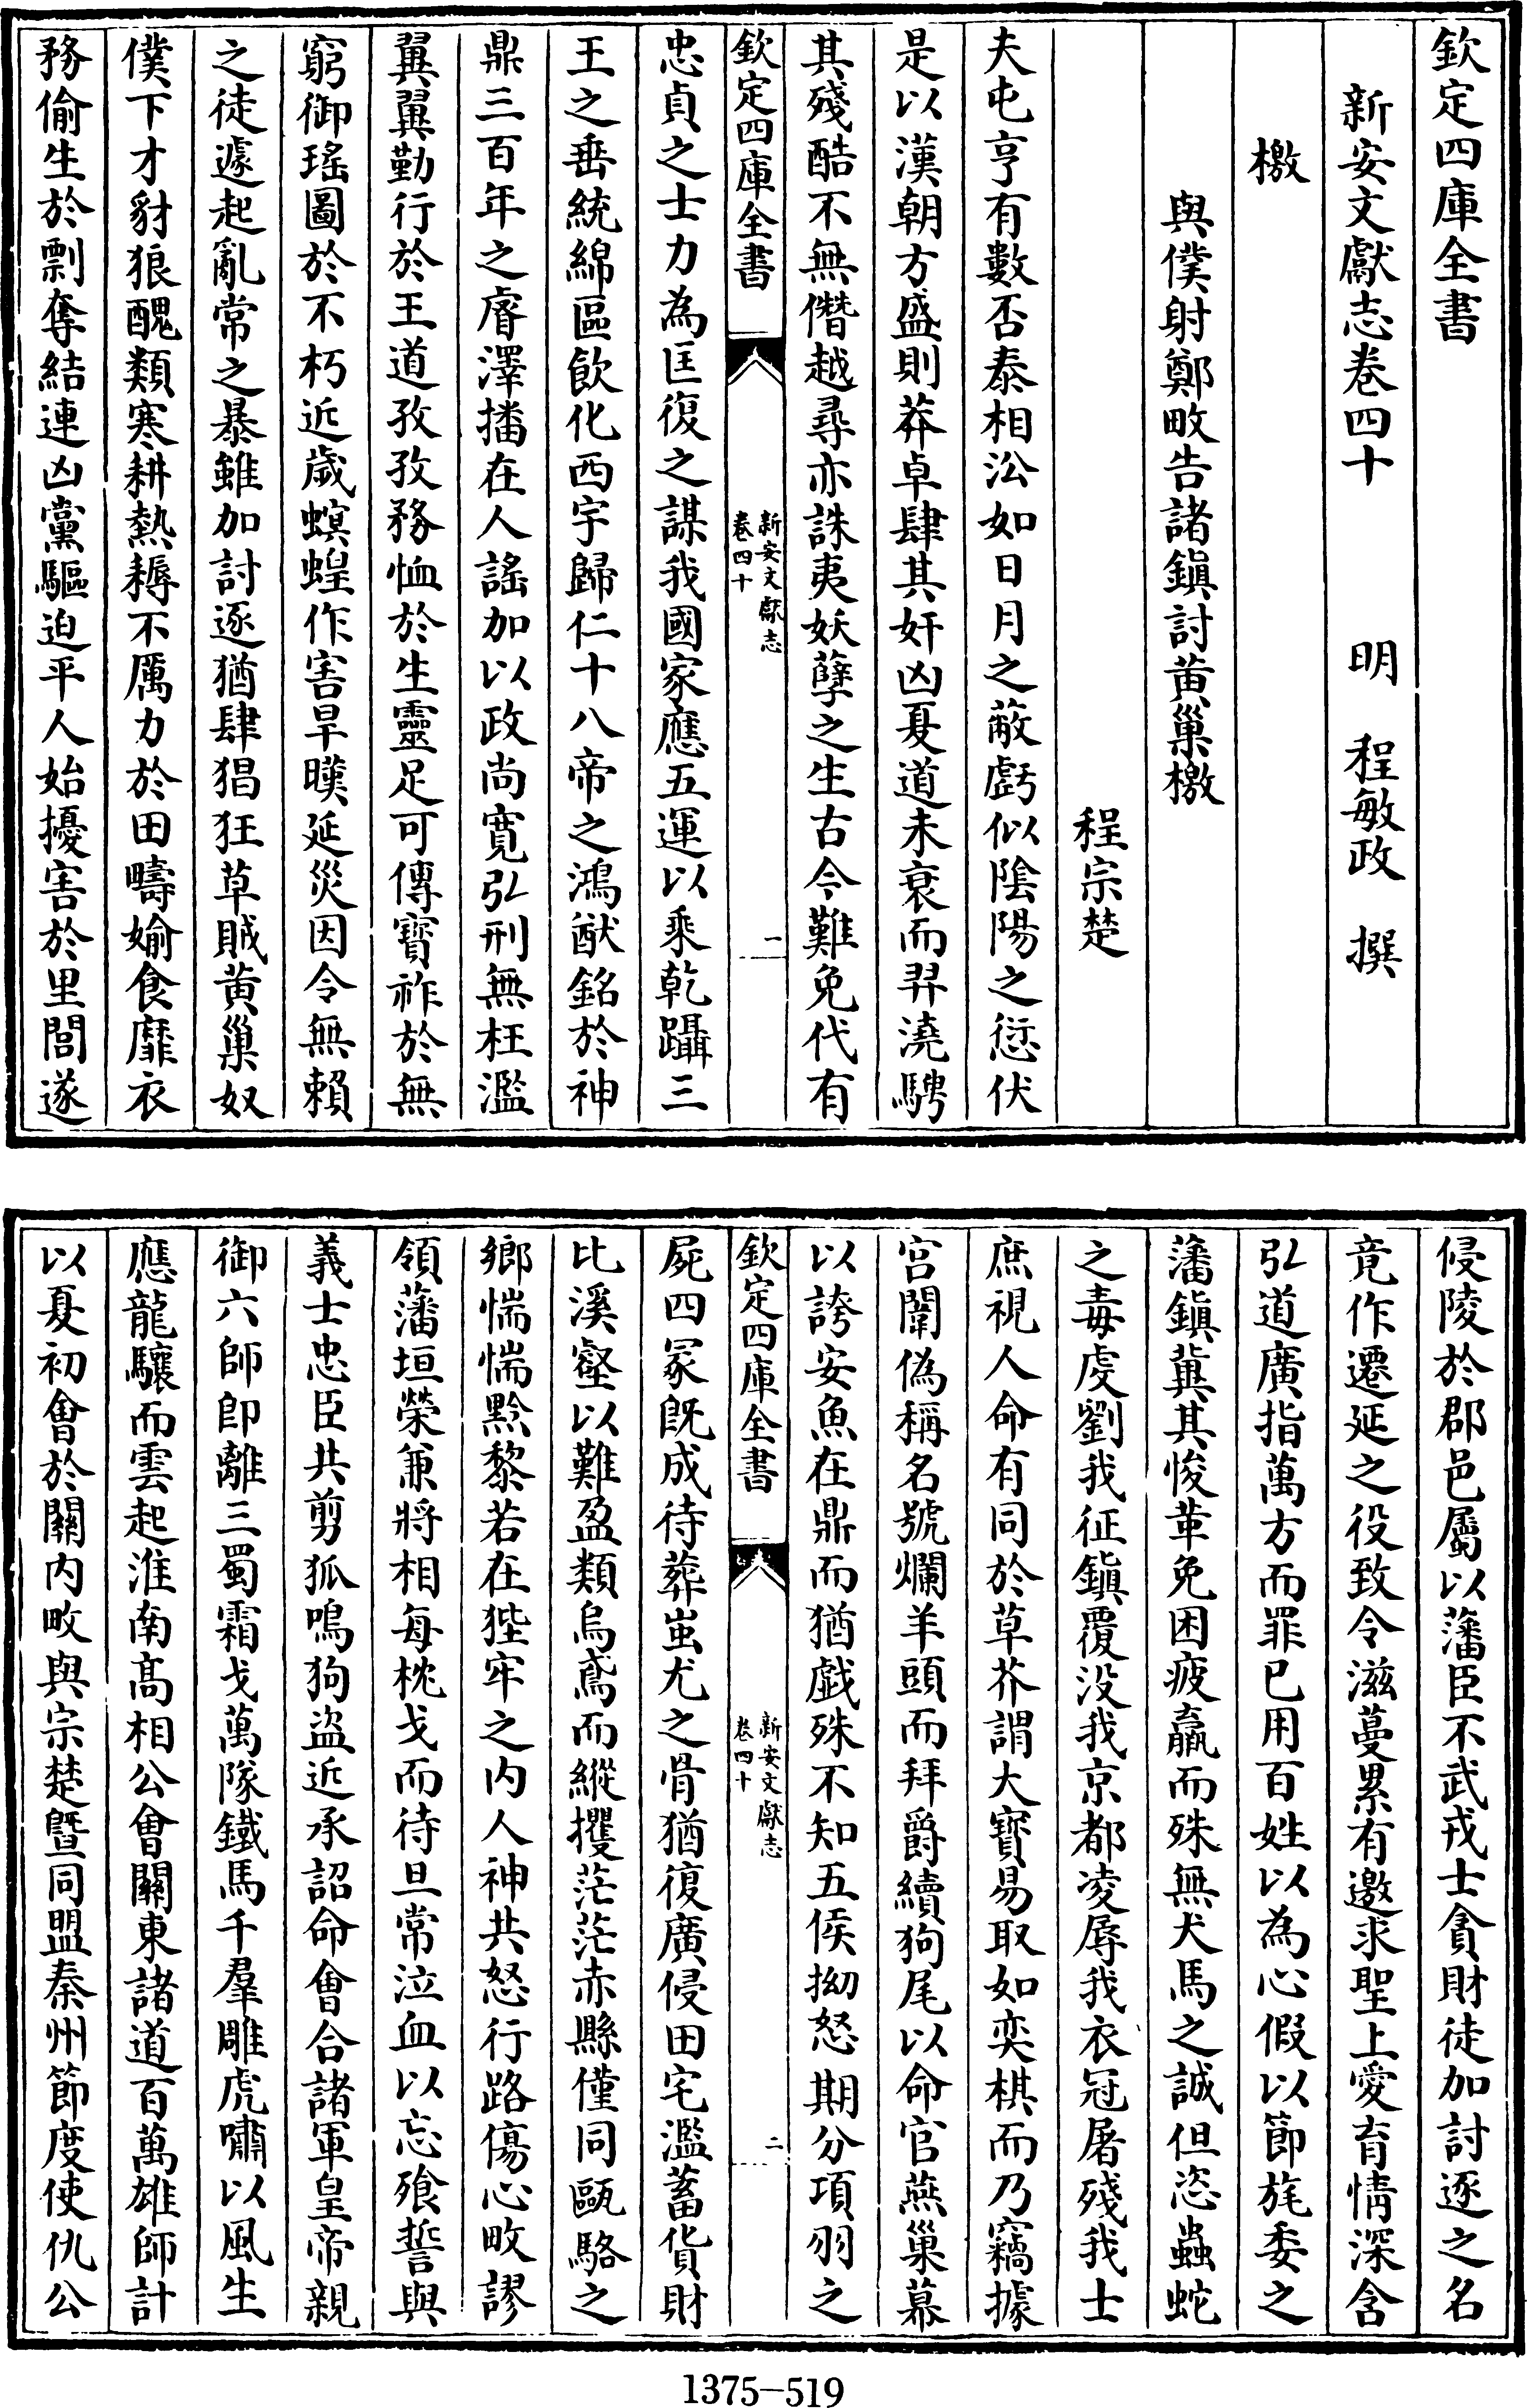 欽定四庫全書
新安文獻志卷四十　明　程敏政　撰
檄
與僕射鄭畋告諸鎮討黄巢檄
程宗楚
夫屯亨有數否泰相沿如日月之蔽虧似陰陽之愆伏
是以漢朝方盛則莽卓肆其奸凶夏道未衰而羿澆騁
其殘酷不無僭越尋亦誅夷妖孽之生古今難免代有
欽定四庫全書
新安文獻志
卷四十
一
忠貞之士力為匡復之謀我國家應五運以乘乾躡三
王之垂統綿區飲化西宇歸仁十八帝之鴻猷銘於神
鼎三百年之睿澤播在人謠加以政尚寛弘刑無枉濫
翼翼勤行於王道孜孜務恤於生靈足可傳寳祚於無
窮御瑤圖於不朽近歲螟蝗作害旱暵延災因令無賴
之徒遽起亂常之暴雖加討逐猶肆猖狂草賊黄巢奴
僕下才豺狼醜類寒耕熱耨不厲力於田疇婾食靡衣
務偷生於剽奪結連凶黨驅迫平人始擾害於里閭遂
侵陵於郡邑屬以藩臣不武戎士貪財徒加討逐之名
竟作遷延之役致令滋蔓累有邀求聖上愛育情深含
弘道廣指萬方而罪已用百姓以為心假以節旄委之
藩鎮冀其悛革免困疲羸而殊無犬馬之誠但恣蟲蛇
之毒虔劉我征鎮覆没我京都凌辱我衣冠屠殘我士
庶視人命有同於草芥謂大寳易取如奕棋而乃竊據
宫闈偽稱名號爛羊頭而拜爵續狗尾以命官燕巢幕
以誇安魚在鼎而猶戲殊不知五侯拗怒期分項羽之
欽定四庫全書
新安文獻志
卷四十
二
屍四冢既成待葬蚩尤之骨猶復廣侵田宅濫蓄貨財
比溪壑以難盈類烏鳶而縱攫茫茫赤縣僅同甌駱之
鄉惴惴黔黎若在狴牢之内人神共怒行路傷心畋謬
領藩垣榮兼將相每枕戈而待旦常泣血以忘飱誓與
義士忠臣共剪狐鳴狗盗近承詔命會合諸軍皇帝親
御六師即離三蜀霜戈萬隊鐵馬千羣雕虎嘯以風生
應龍驤而雲起淮南髙相公會關東諸道百萬雄師計
以夏初會於關内畋與宗楚暨同盟秦州節度使仇公
1375—519